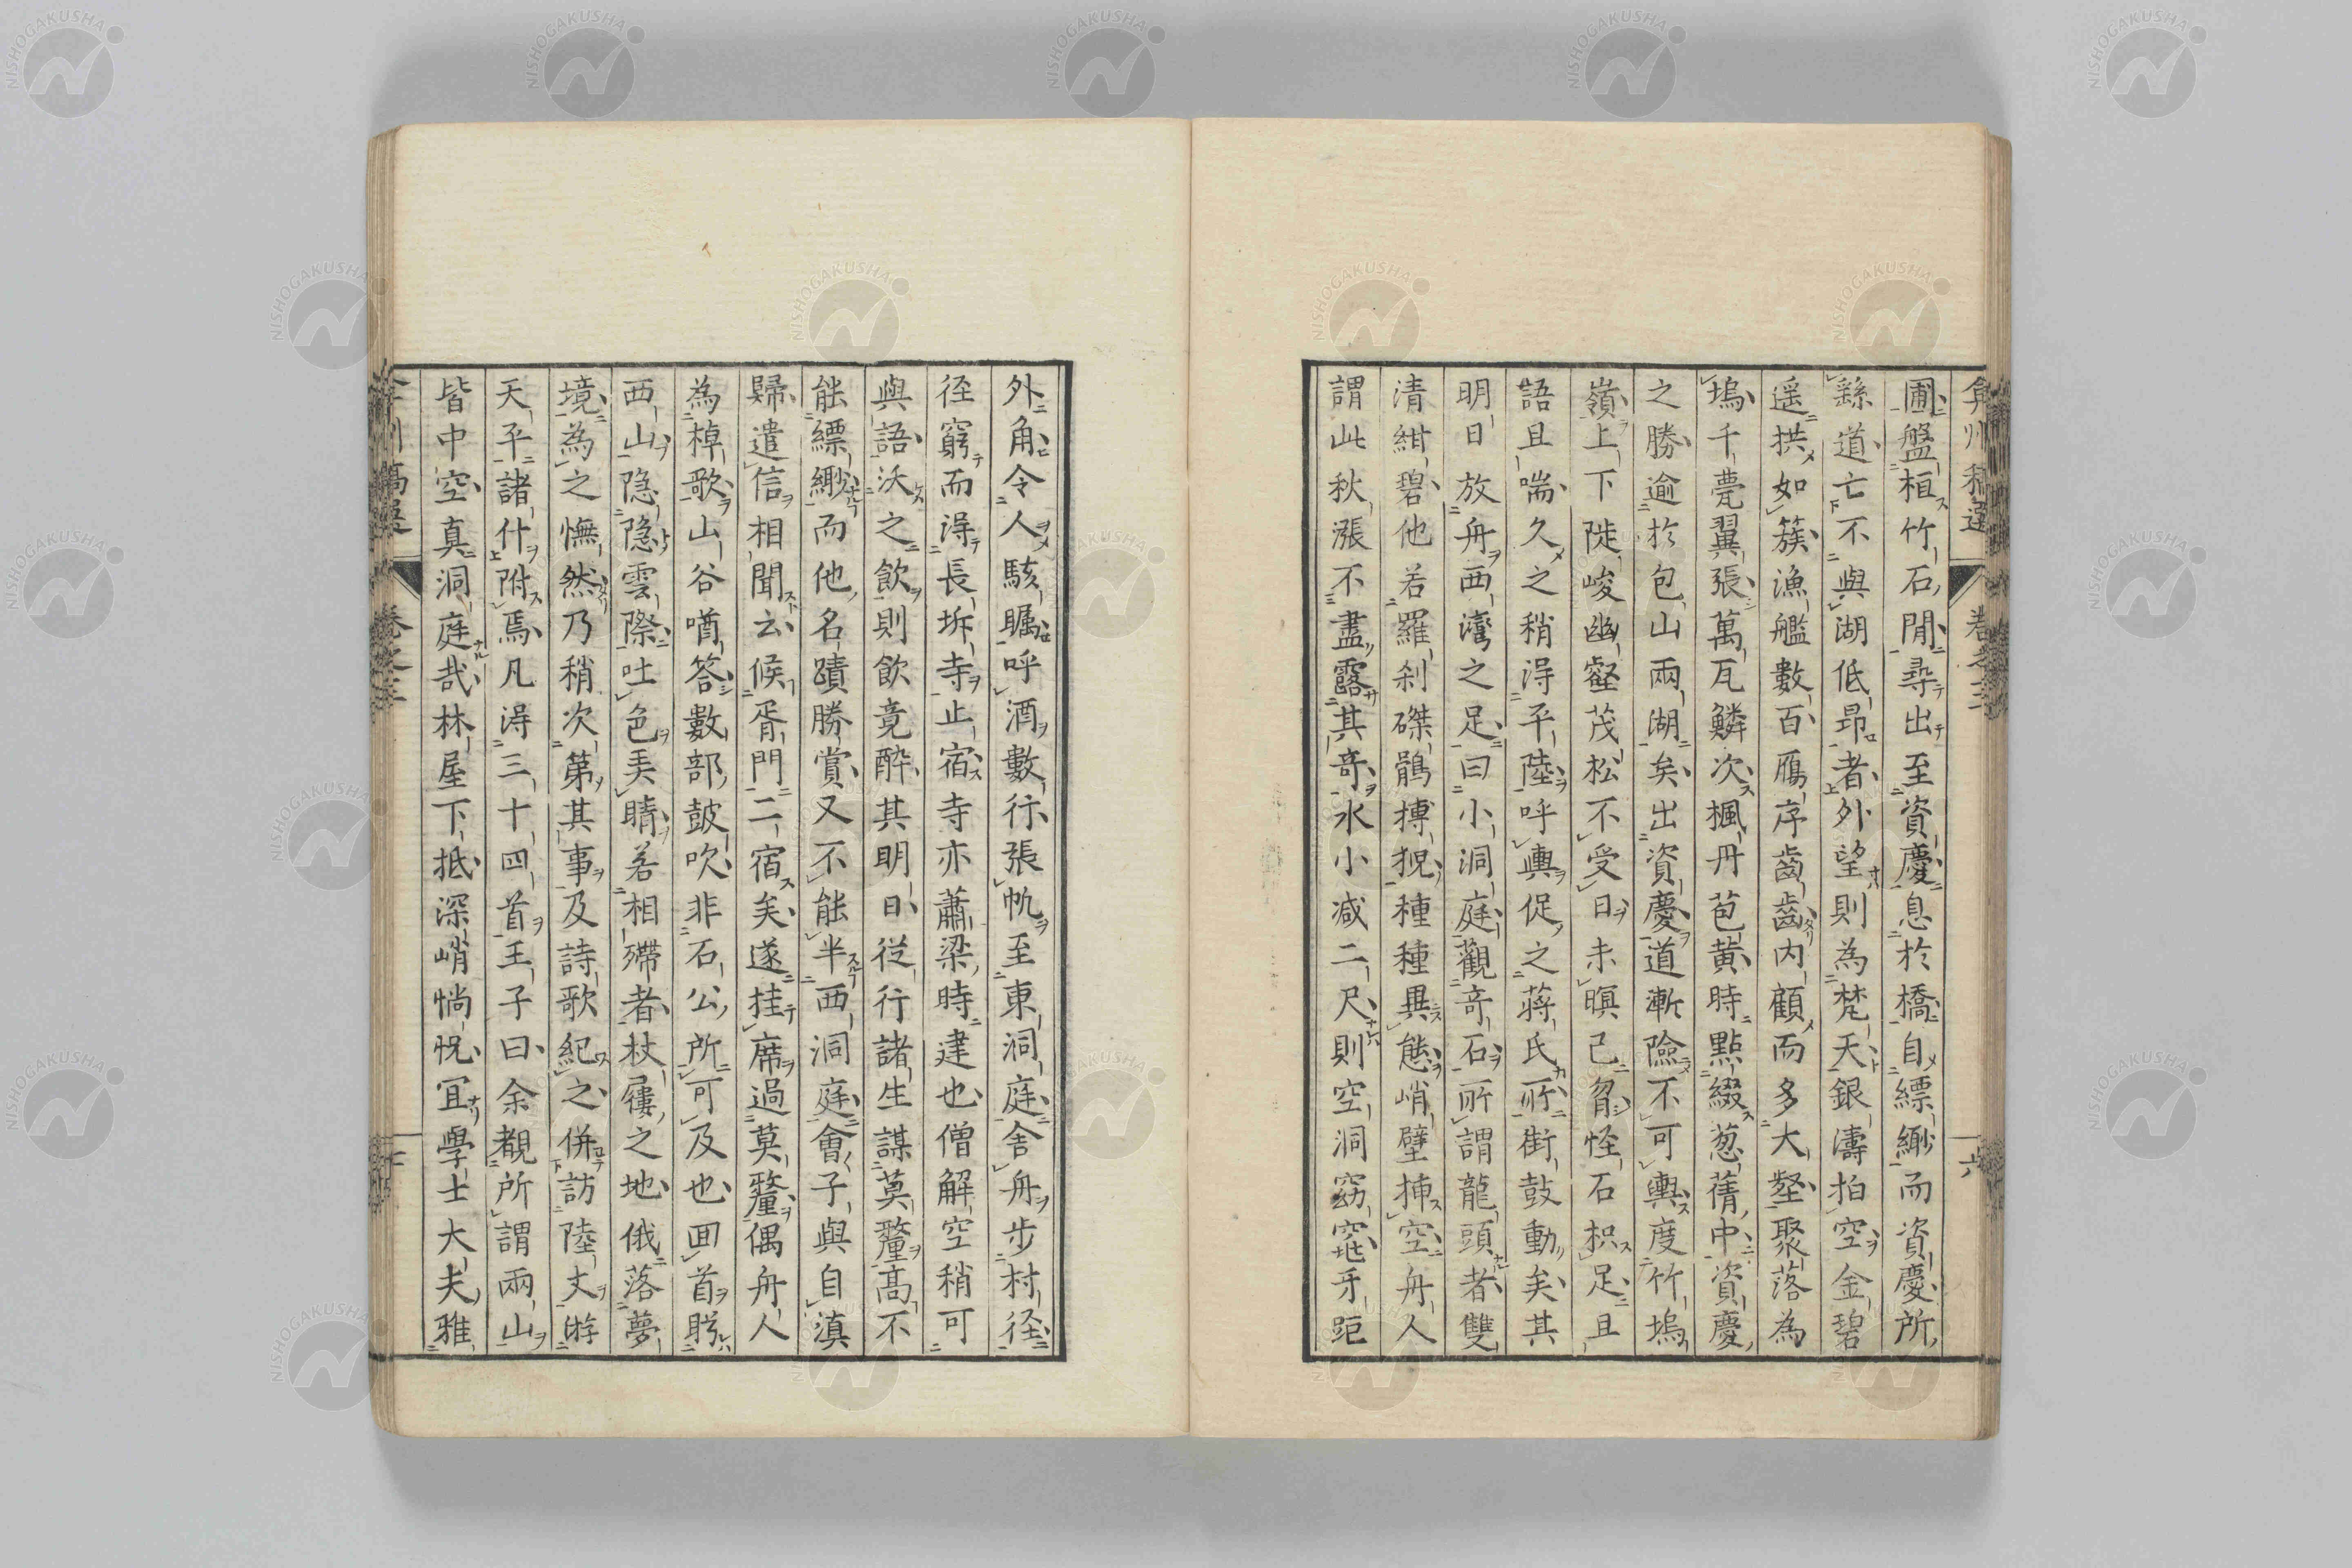 圃盤桓竹石間尋出至資慶息於橋自縹緲而資慶所
繇道亡不與湖低昂者外望則為梵天銀濤拍空金碧
遥拱如簇漁艦數百鴈序齒齒内顧而多大壑聚落為
塢千甍翼張萬瓦鱗次楓丹苞黄時點綴葱蒨中資慶
之勝逾於包山兩湖矣出資慶道漸險不可輿度竹塢
嶺上下陡峻幽壑茂松不受日未暝已曶怪石枳足且
語且喘久之稍得平陸呼輿促之蔣氏所街鼓動矣其
明日放舟西灣之足曰小洞庭觀竒石所謂龍頭者雙
清紺碧他若羅刹磔鶻搏猊種種異態峭壁揷空舟人
謂此秋漲不盡露其竒水小減二尺則空洞窈窕牙距
外角令人駭矚呼酒數行張帆至東洞庭舎舟步村径
径窮而得長坼寺止宿寺亦蕭梁時建也僧解空稍可
與語沃之飲則飲竟醉其明日従行諸生謀莫釐高不
能縹緲而他名蹟勝賞又不能半西洞庭會子與自滇
歸遣信相聞云候胥門二宿矣遂挂席過莫釐偶舟人
為棹歌山谷噌答數部皷吹非石公所可及也囬首眎
西山隠隠雲際吐色美睛若相殢者杖屨之地俄落夢
境為之憮然乃稍次第其事及詩歌紀之併訪陸丈㳺
天平諸什附焉凡得三十四首王子曰余覩所謂兩山
皆中空真洞庭哉林屋下抵深峭惝怳宜學士大夫雅
弇州稿選 卷之三 六
NISHOGAKUSHA